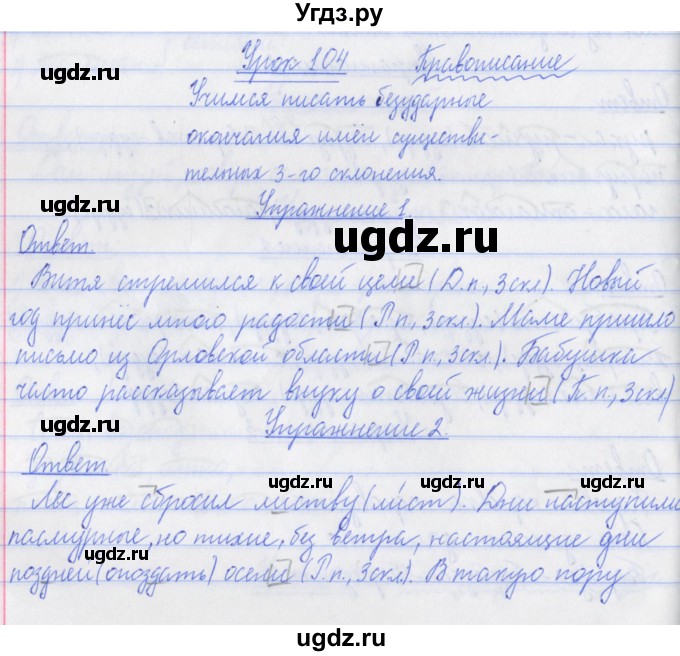 Угдз.ру
Урок 104 Правописание
ugdz.ru ugdz.ru
Учимся писать безударные
окончания имён существи-
тельных 3-го склонения.
ugdz.ru
Упражнение 1.
ugdz.ru
Ответ.
Витя стремился к своей цели (Д.п., 3 скл). Новый
год принёс много радости (Р.п., 3 скл). Маме пришло
ugdz.ru
письмо из Орловской области (Р.п., 3 скл.). Бабушка
часто рассказывает внуку о своей жизни (П.п., 3 скл)
ugdz.ru
Упражнение 2.
Ответ
ugdz.ru ugdz.ru
Лес уже сбросил листву (ли́ст). Дни наступили
пасмурные, но тихие, без ветра, настоящие дни
ugdz.ru
поздней (опоздать) осени (Р.п., 3 скл). В такую пору
ugdz.ru
ugdz.ru